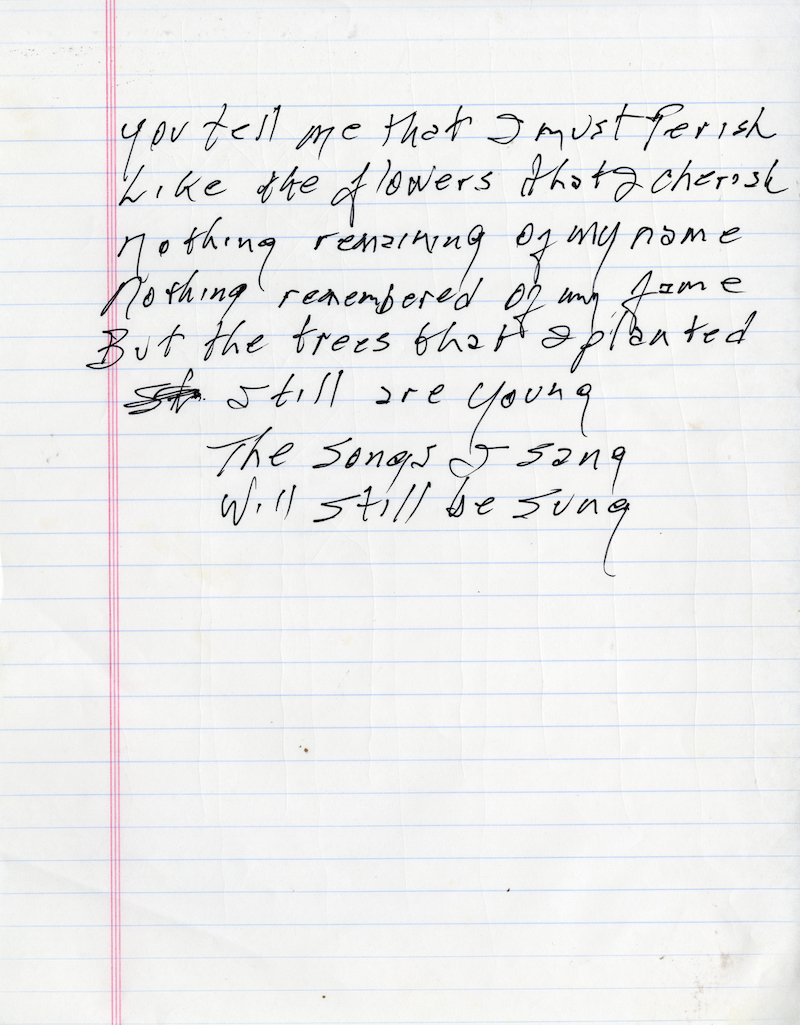 you tell me that I must Perish
Like the flowers that I cherish
nothing remaining of my name
Nothing remembered of my fame
But the trees that I planted
still are young
The songs I sang
Will still be sung